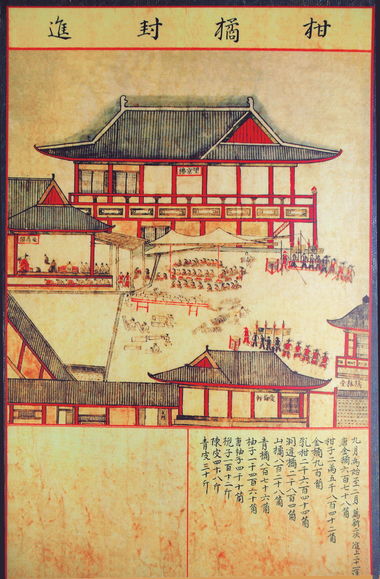 柑橘封進
望京樓
九月爲始至二月薦新次進上二十一運
唐金橘六百七十八箇
柑子二萬五千八百四十二箇
金橘九百箇
乳柑二千六百四十四箇
洞庭橘二千八百四箇
山橘八百二十八箇
青橘八百七十六箇
柚子一千四百六十箇
唐柚子四千十箇
梔子一百十二斤
陳皮四十八斤
青皮三十斤